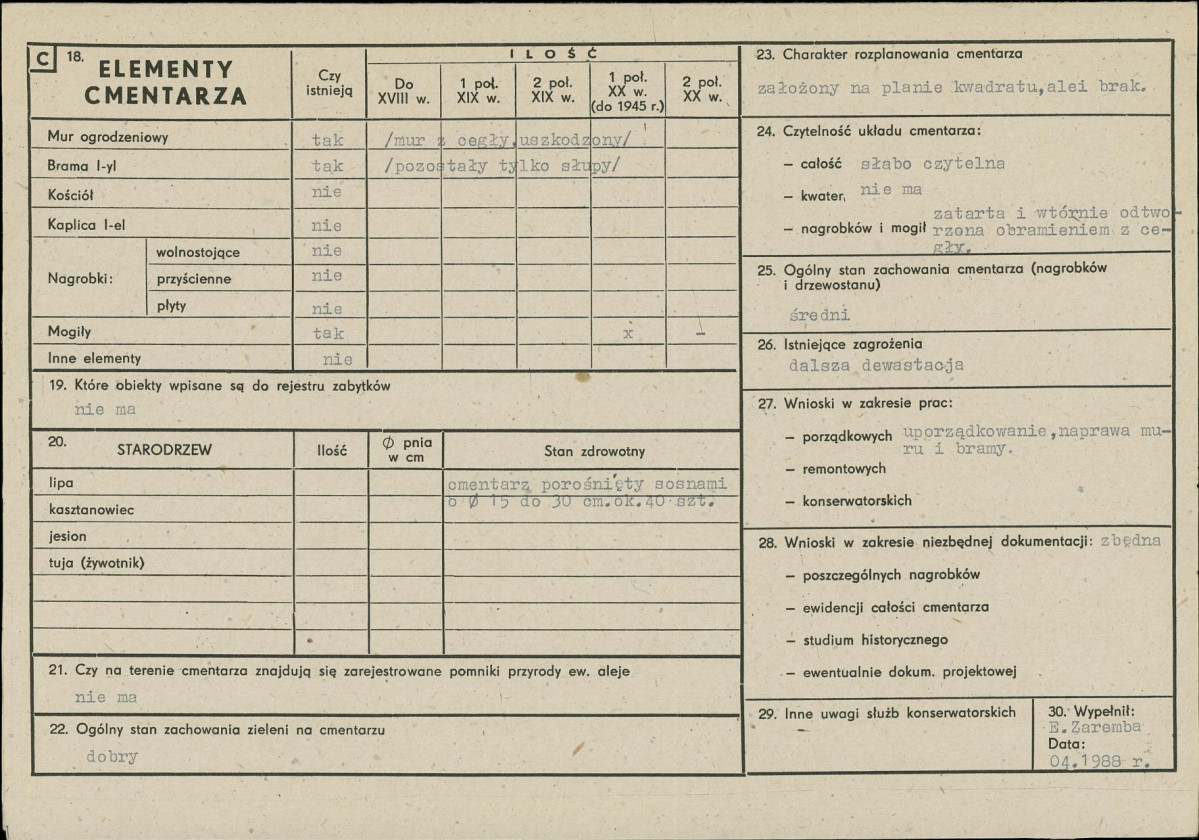 C 18. ELEMENTY CMENTARZA
Czy istnieją
ILOŚĆ
Do XVIII w.
1 poł. XIX w.
2 poł. XIX w.
1 poł. XX w. (do 1945 r.)
2 poł. XX w.
Mur ogrodzeniowy tak /mur z cegły,uszkodzony/
Brama I-yl tak /pozostały tylko słupy/
Kościół nie
Kaplica I-el nie
Nagrobki:
wolnostojące nie
przyścienne nie
płyty nie
Mogiły tak x –
Inne elementy nie
19. Które obiekty wpisane są do rejestru zabytków
nie ma
20. STARODRZEW
Ilość
Ø pnia w cm
Stan zdrowotny
lipa cmentarz porośnięty sosnami
o Ø 15 do 30 cm.ok.40 szt.
kasztanowiec
jesion
tuja (żywotnik)
21. Czy na terenie cmentarza znajdują się zarejestrowane pomniki przyrody ew. aleje
nie ma
22. Ogólny stan zachowania zieleni na cmentarzu
dobry
23. Charakter rozplanowania cmentarza
założony na planie kwadratu,alei brak.
24. Czytelność układu cmentarza:
– całość słabo czytelna
– kwater, nie ma
zatarta i wtórnie odtwo-
– nagrobków i mogił rzona obramieniem z ce-
gły.
25. Ogólny stan zachowania cmentarza (nagrobków
i drzewostanu)
średni
26. Istniejące zagrożenia
dalsza dewastacja
27. Wnioski w zakresie prac:
– porządkowych uporządkowanie,naprawa mu-
ru i bramy.
– remontowych
– konserwatorskich
28. Wnioski w zakresie niezbędnej dokumentacji: zbędna
– poszczególnych nagrobków
– ewidencji całości cmentarza
– studium historycznego
– ewentualnie dokum. projektowej
29. Inne uwagi służb konserwatorskich
30. Wypełnił:
E.Zaremba
Data:
04.1988 r.